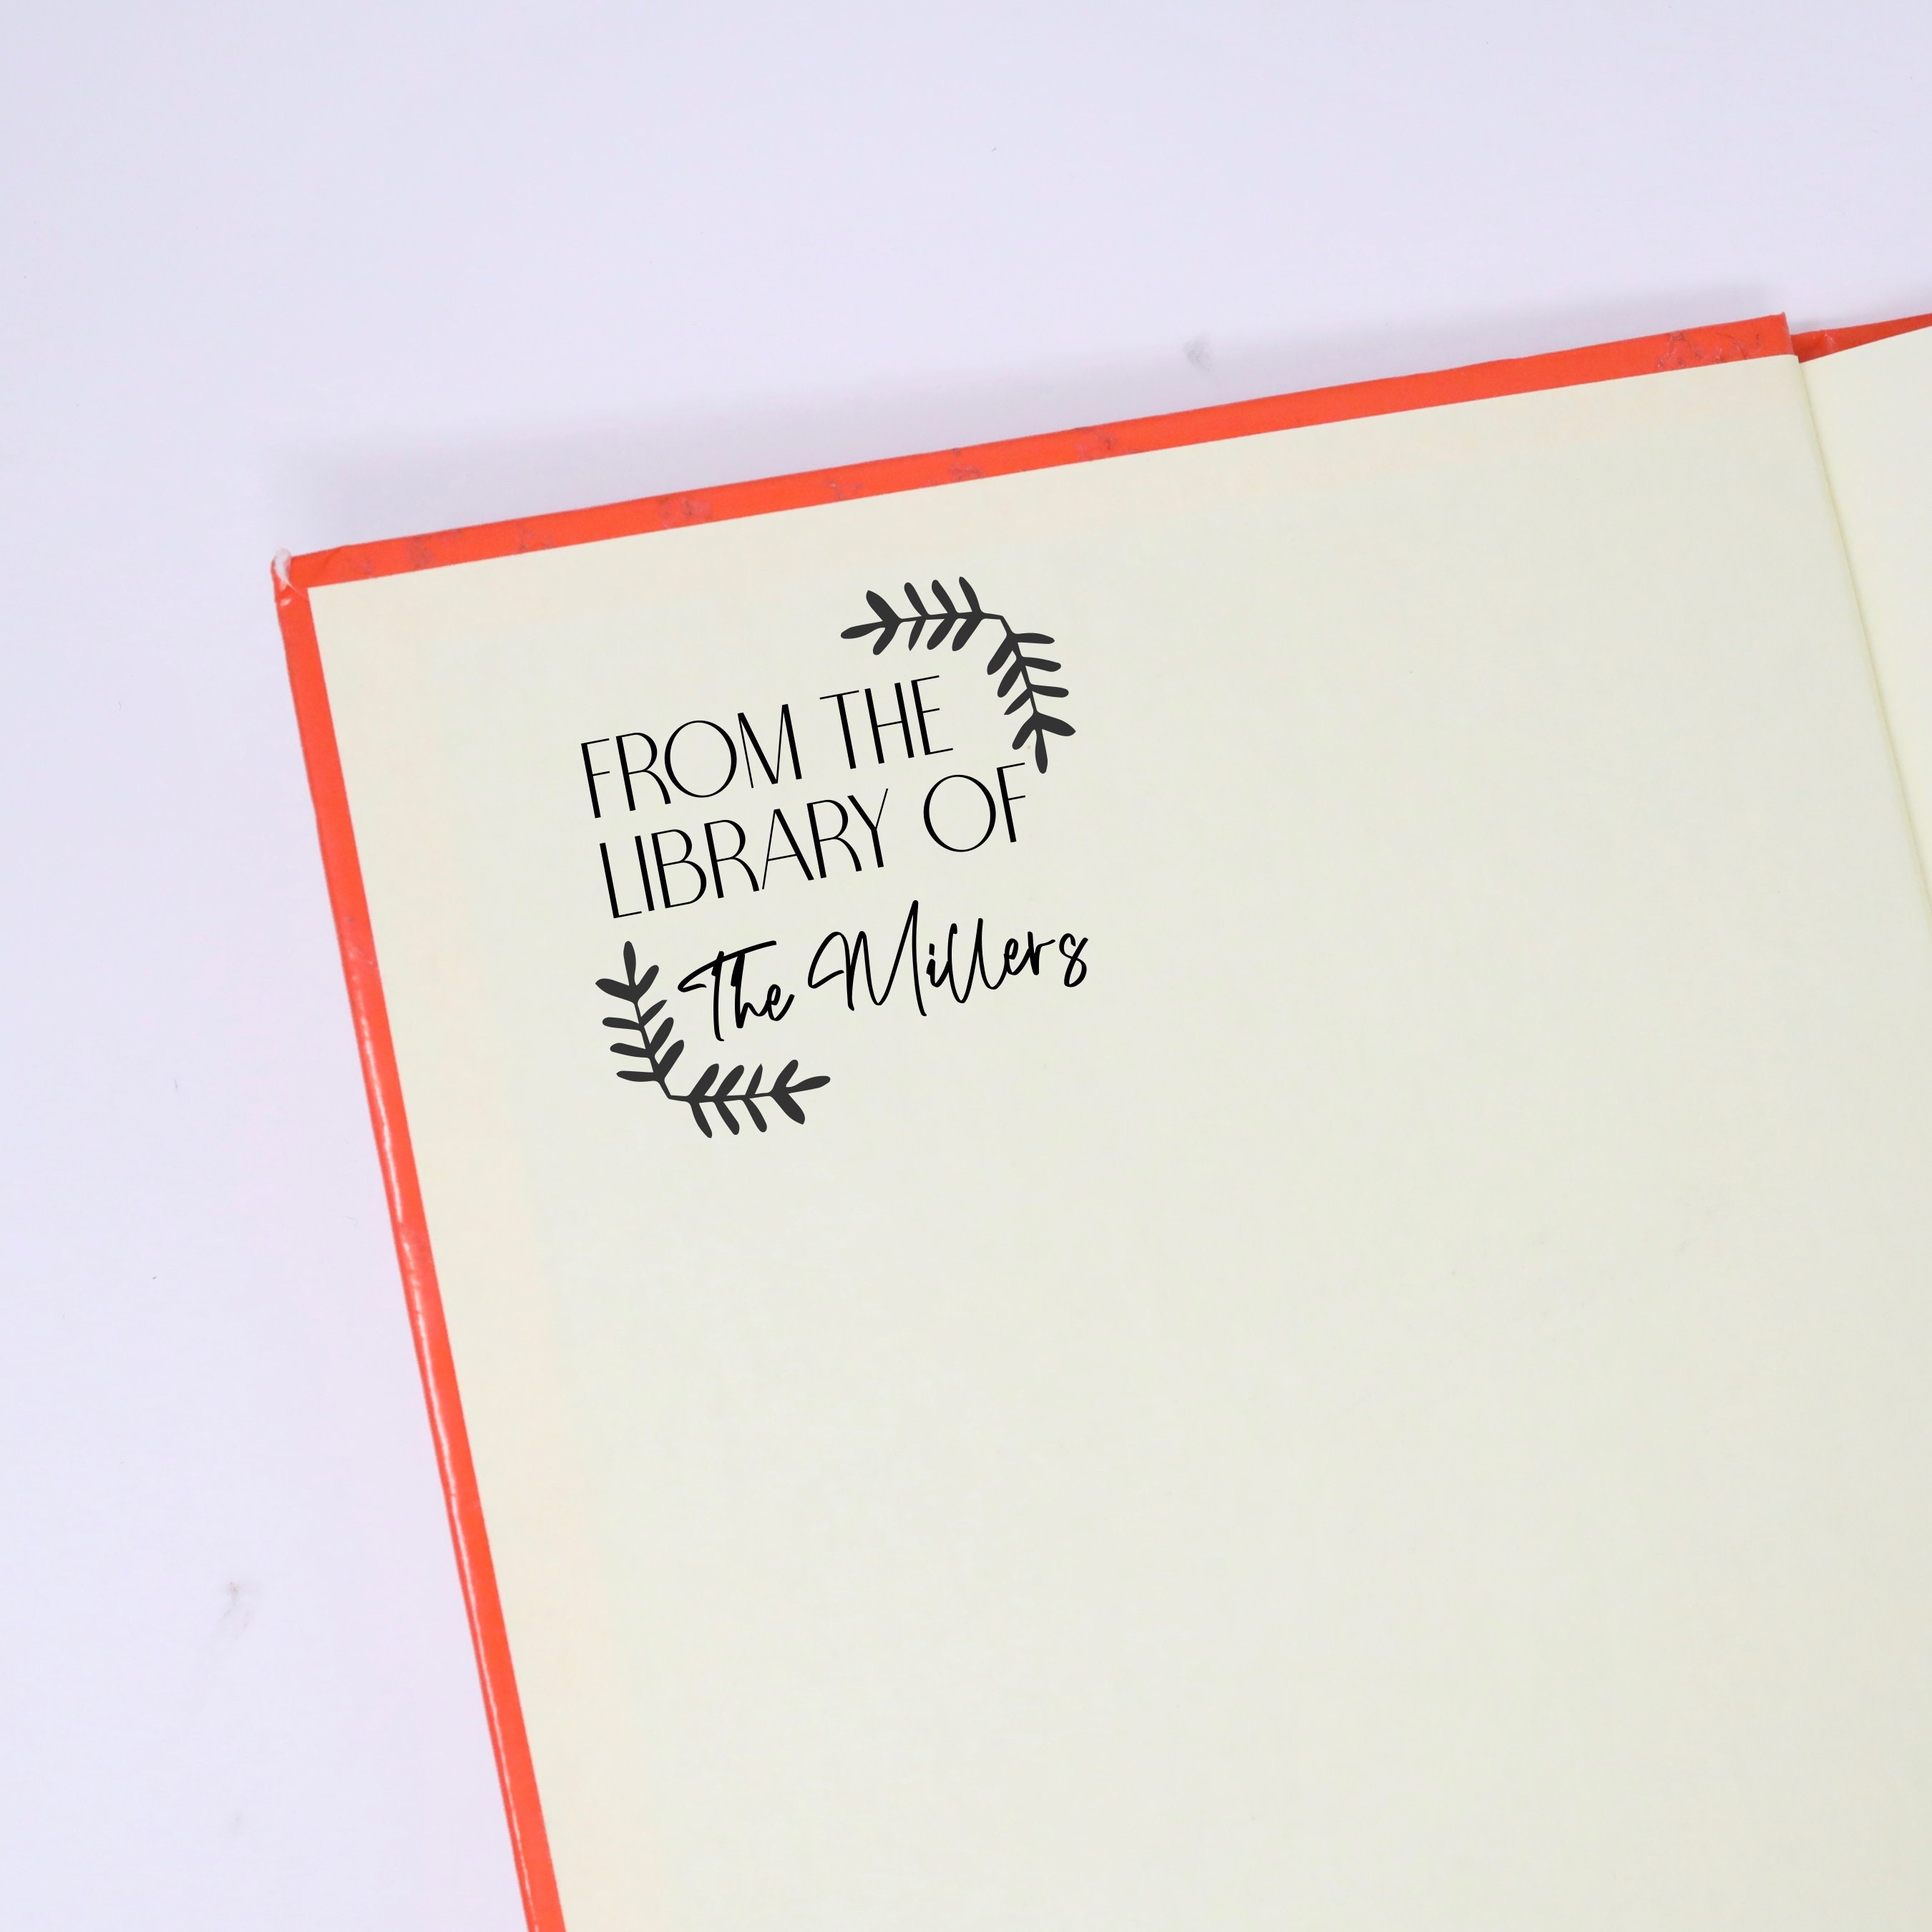 FROM THE
LIBRARY OF
The Millers